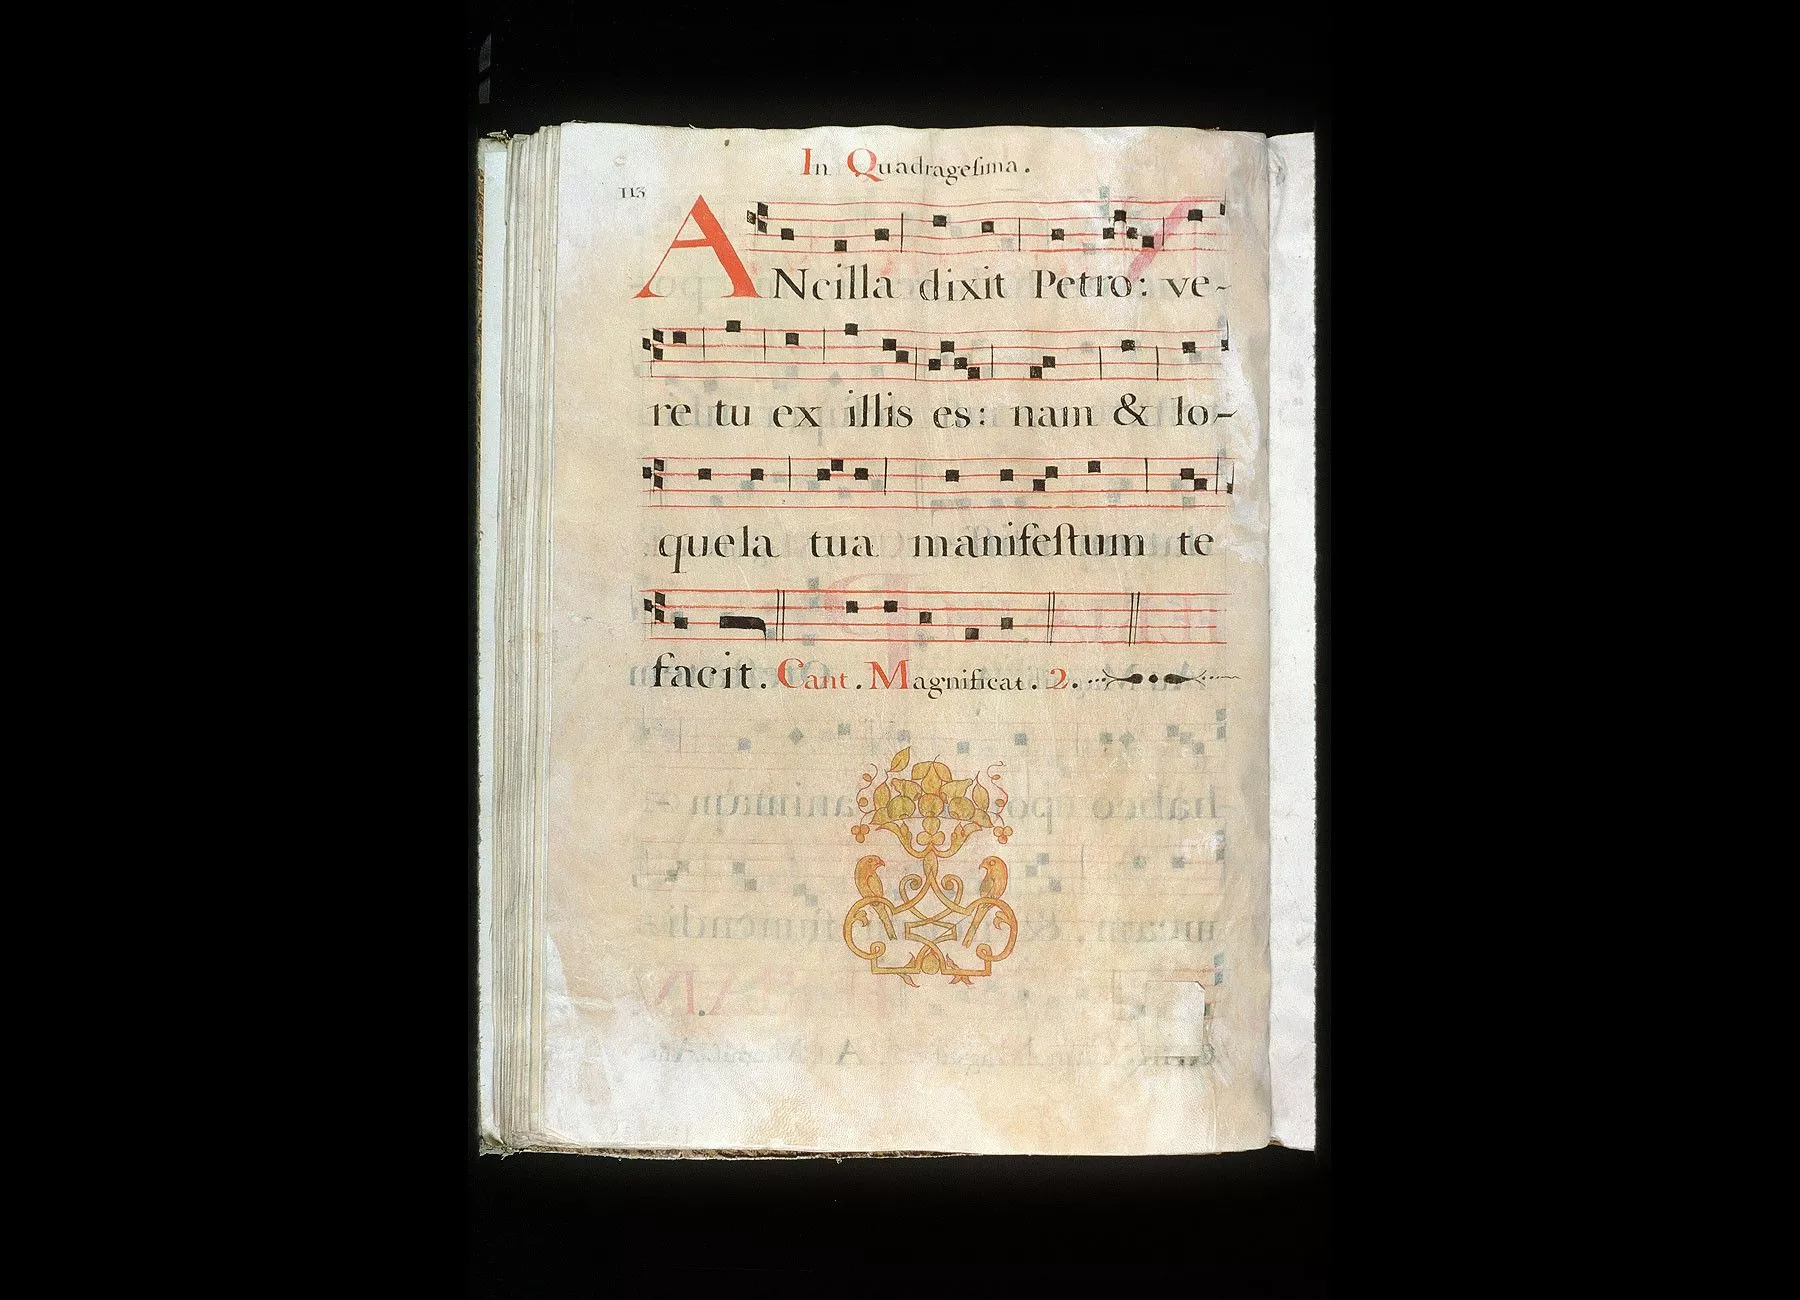 In Quadrageſima.
113
ANcilla dixit Petro: ve-
re tu ex illis es: nam & lo-
quela tua manifeſtum te
facit. Cant. Magnificat. 2.